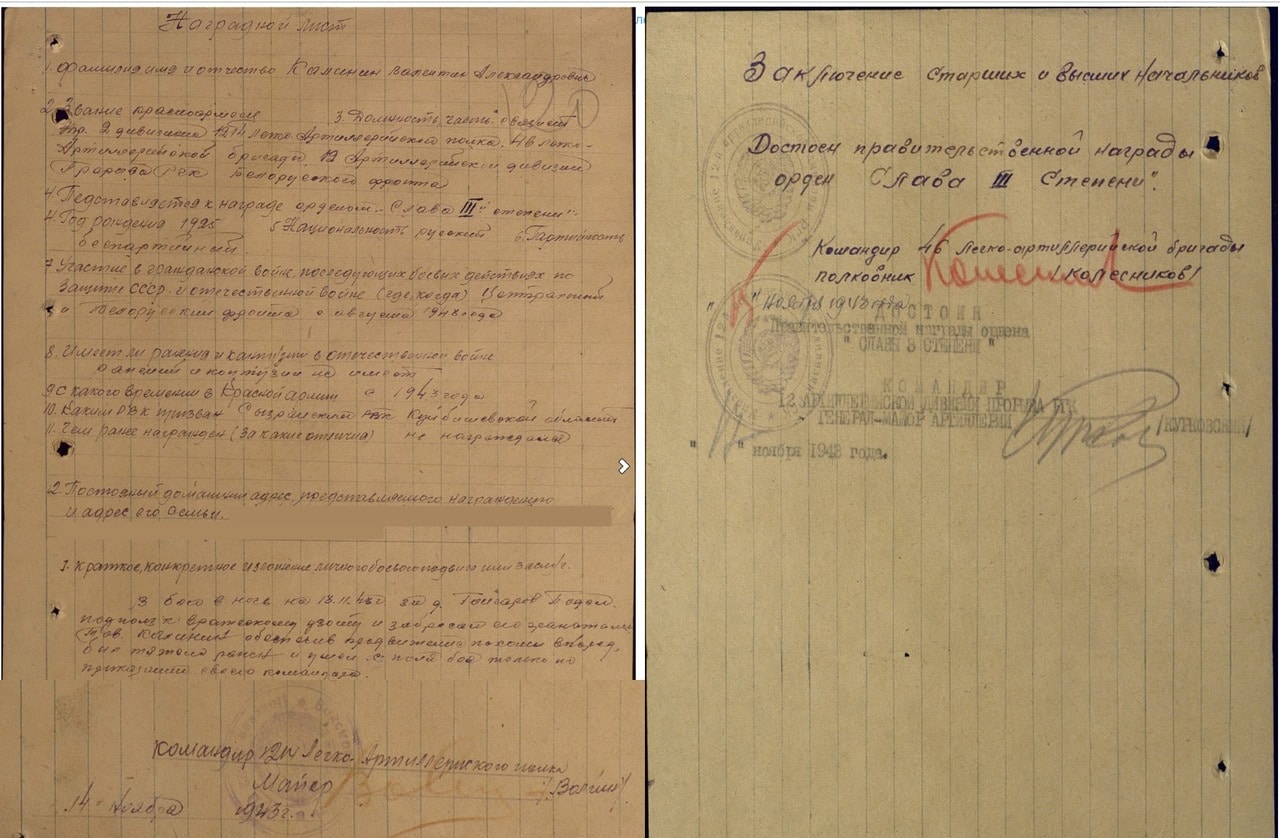 Наградной лист
1. Фамилия имя и отчество Калинин Валентин Александрович
2. Звание красноармеец 3. Должность, часть
тр. 2 дивизиона 1214 легко-Артиллерийского полка 46 легко-
Артиллерийской бригады 12 Артиллерийской дивизии
Прорыва РГК Белорусского фронта
4. Педставляется к награде орденом "Слава III степени".
4. Год рождения 1925 5 Национальность русский 6. Партийность
беспартийный
7 Участие в гражданской войне, последующих боевых действиях по
защите СССР и отечественной войне (где, когда) Центральный
и Белорусский фронта с августа 1943 года
8. Имеет ли ранения и контузии в отечественной войне
ранений и контузии не имеет
9 с какого времени в Красной армии с 1943 года
10. Каким РВК призван Сызранским РВК Куйбышевской области
11. Чем ранее награжден (за какие отличия) не награждался
12 Постоянный домашний адрес, представляемого к награждению
и адрес его семьи.
1. краткое, конкретное изложение личного боевого подвига или заслуг.
В бою в ночь на 13.11.43г за д.
подполз к вражескому дзоту и забросал его гранатами
Тов. Калинин обеспечив продвижение пехоты вперед,
был тяжело ранен и ушел с поля боя только по
приказанию своего командира.
Командир 1214 Легко-Артиллерийского полка
Майор /Волгин/
14 - Ноября 1943г.
Заключение Старших и высших Начальников
Достоен правительственной награды
орден "Слава III Степени".
Командир 46 легко-артиллерийской бригады
полковник /Колесников/
" " Ноября 1943 года
ДОСТОИН
Правительственной награды ордена
"СЛАВЫ 3 СТЕПЕНИ"
КОМАНДИР
12 АРТИЛЛЕРИЙСКОЙ ДИВИЗИИ ПРОРЫВА РГК
ГЕНЕРАЛ-МАЙОР АРТИЛЛЕРИИ /КУРКОВСКИЙ/
" " ноября 1943 года.